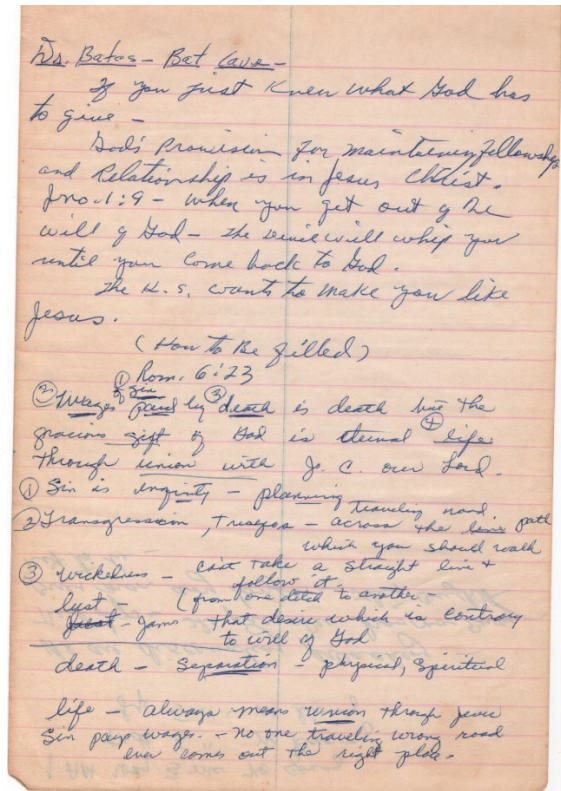 Dr. Batas - Bat Cave -
If you just knew what God has
to give -
God's Provision for maintaining fellowship
and Relationship is in Jesus Christ.
Jno. 1:9 - when you get out of the
will of God - the Devil will whip you
until you come back to God.
The H. S. wants to make you like
Jesus.
(How to Be filled)
① Rom. 6:23
② Wages of sin paid by ③ death is death but the
gracious gift of God is eternal ④ life
through union with J. C. our Lord.
① Sin is iniquity - planning
traveling road.
② Transgression, Trespass - across the line path
which you should walk
③ wickedness - can't take a straight line &
follow it.
(from one ditch to another
lust - James that desire which is contrary
to will of God
death - Separation - physical, Spiritual
life - always means union through Jesus
Sin pays wages. - no one traveling wrong road
ever comes out the right place.